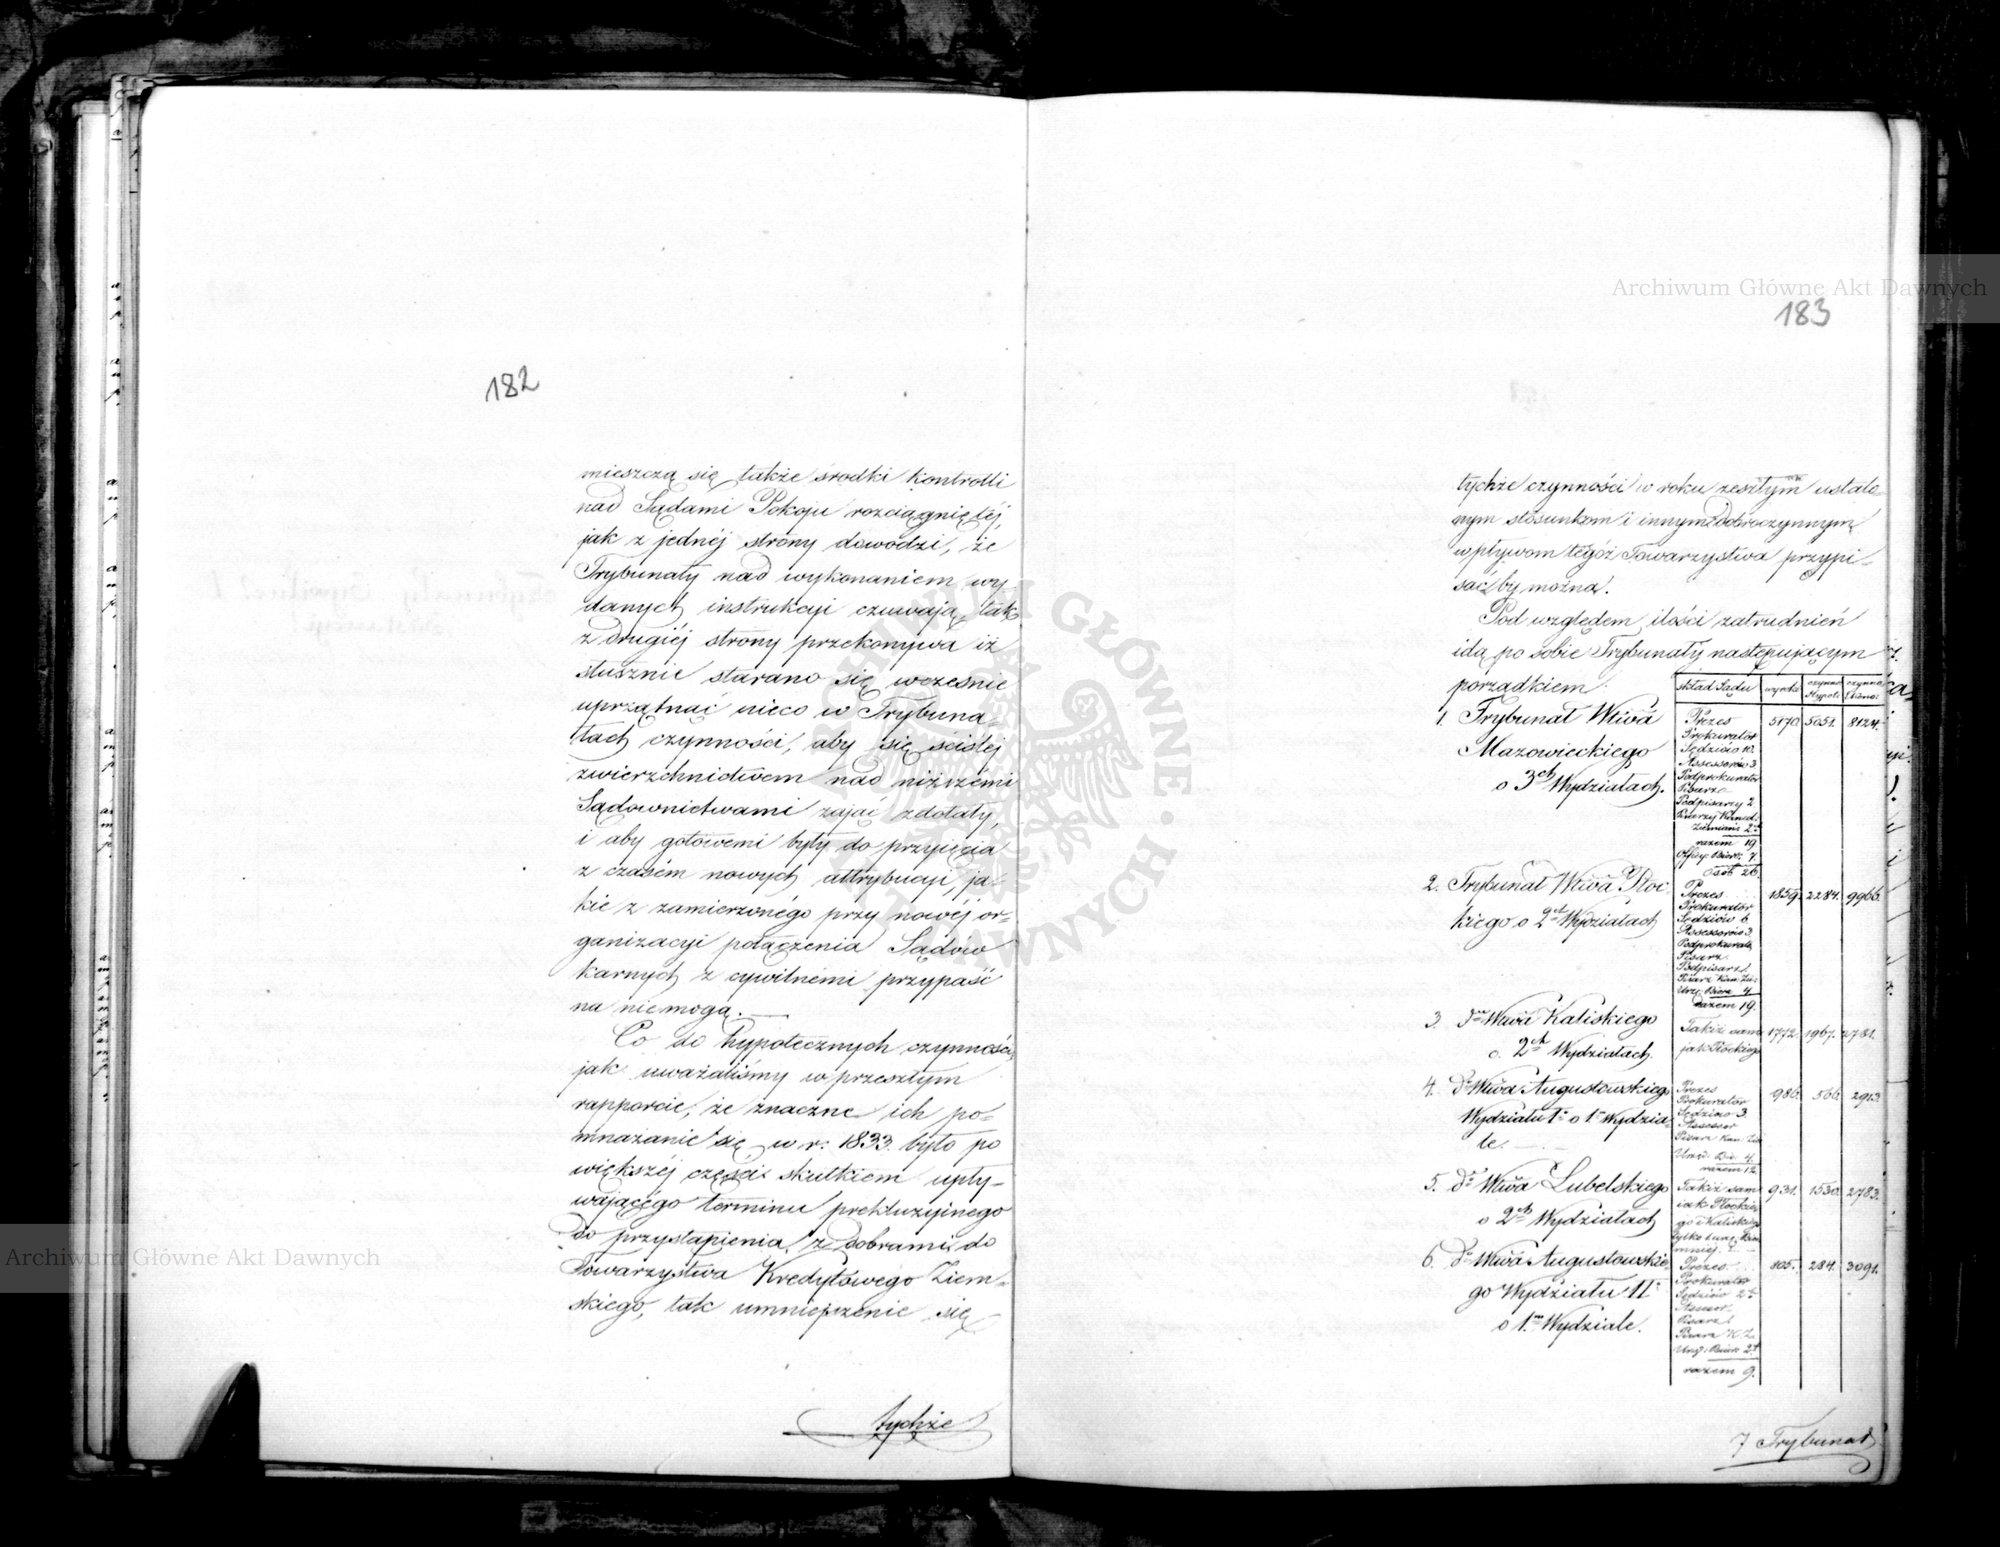 182
mieszczą się także środki kontrolli
nad Sądami Pokoju rozciągniętéj,
jak z jednéj strony dowodzi, że
Trybunały nad wykonaniem wy-
danych instrukcji czuwają, tak
z drugiéj strony przekonywa iż
słusznie starano się wcześnie
uprzątnąć nieco w Trybuna-
łach czynności, aby się ściśléj
zwierzchnictwem nad niższemi
Sądownictwami zająć zdołały,
i aby gotowemi były do przyięcia
z czasem nowych attrybucyi, ja-
kie z zamierzonego przy nowéj or-
ganizacyi połączenia Sądów
karnych z cywilnemi przypaść
na nie mogą.
Co do hypotecznych czynności,
jak uważaliśmy w przeszłym
rapporcie, że znaczne ich po-
mnażanie się w r. 1833. było po
większéj części skutkiem upły-
wającego terminu prekluzyjnego
do przystąpienia z dobrami do
Towarzystwa Kredytowego Ziem-
skiego, tak umniejszenie się
tychże
Archiwum Główne Akt Dawnych
183
tychże czynności w roku zeszłym ustalo-
nym stosunkom i innym dobroczynnym
wpływom tegóż Towarzystwa przypi-
sać by można.
Pod względem ilości zatrudnień
idą po sobie Trybunały następującym
porządkiem:
skład Sądu wyroki czynno: Hypot: czynno:
1. Trybunał Wtwa
Mazowieckiego
o 3ch Wydziałach.
Prezes 5170. 5051. 8124.
Prokurator
Sędziów 10.
Assessorów 3
Podprokurator
Pisarz
Podpisarzy 2
Pisarzy Kancel:
Ziemian: 2ch
razem 19
Offic: Biór: 7.
Osób 26.
2. Trybunał Wtwa Płoc-
kiego o 2ch Wydziałach
Prezes 1859. 2284. 9966.
Prokurator
Sędziów 6
Assessorów 3.
Podprokurat:
Pisarz
Podpisarz 1.
Pisarz Kan. Zie:
Urzę: Biór: 4
razem 19.
3. dtto Wtwa Kaliskiego
o 2ch Wydziałach.
Takiż sam 1772. 1967. 2781.
jak Płockiego
4. do Wtwa Augustowskiego
Wydziału 1o o 1m Wydzia-
le.
Prezes 986. 566. 2913.
Prokurator
Sędziów 3.
Assessor
Pisarz Kan. Zie:
Urzęd: Biór: 4.
razem 12
5. do Wtwa Lubelskiego
o 2ch Wydziałach
Takiż sam 931. 1530. 2783.
jak Płockie-
go i Kaliskieg
tylko 1 urzę: Kan
mniej.
6. do Wtwa Augustowskie-
go Wydziału IIo
o 1m Wydziale.
Prezes 805. 284. 3091.
Prokurator
Sędziów 2ch
Assessor
Pisarz
Pisarz K. Zie:
Urzę: Biór: 2ch
razem 9.
7 Trybunał
Archiwum Główne Akt Dawnych
ARCHIWUM GŁÓWNE AKT DAWNYCH